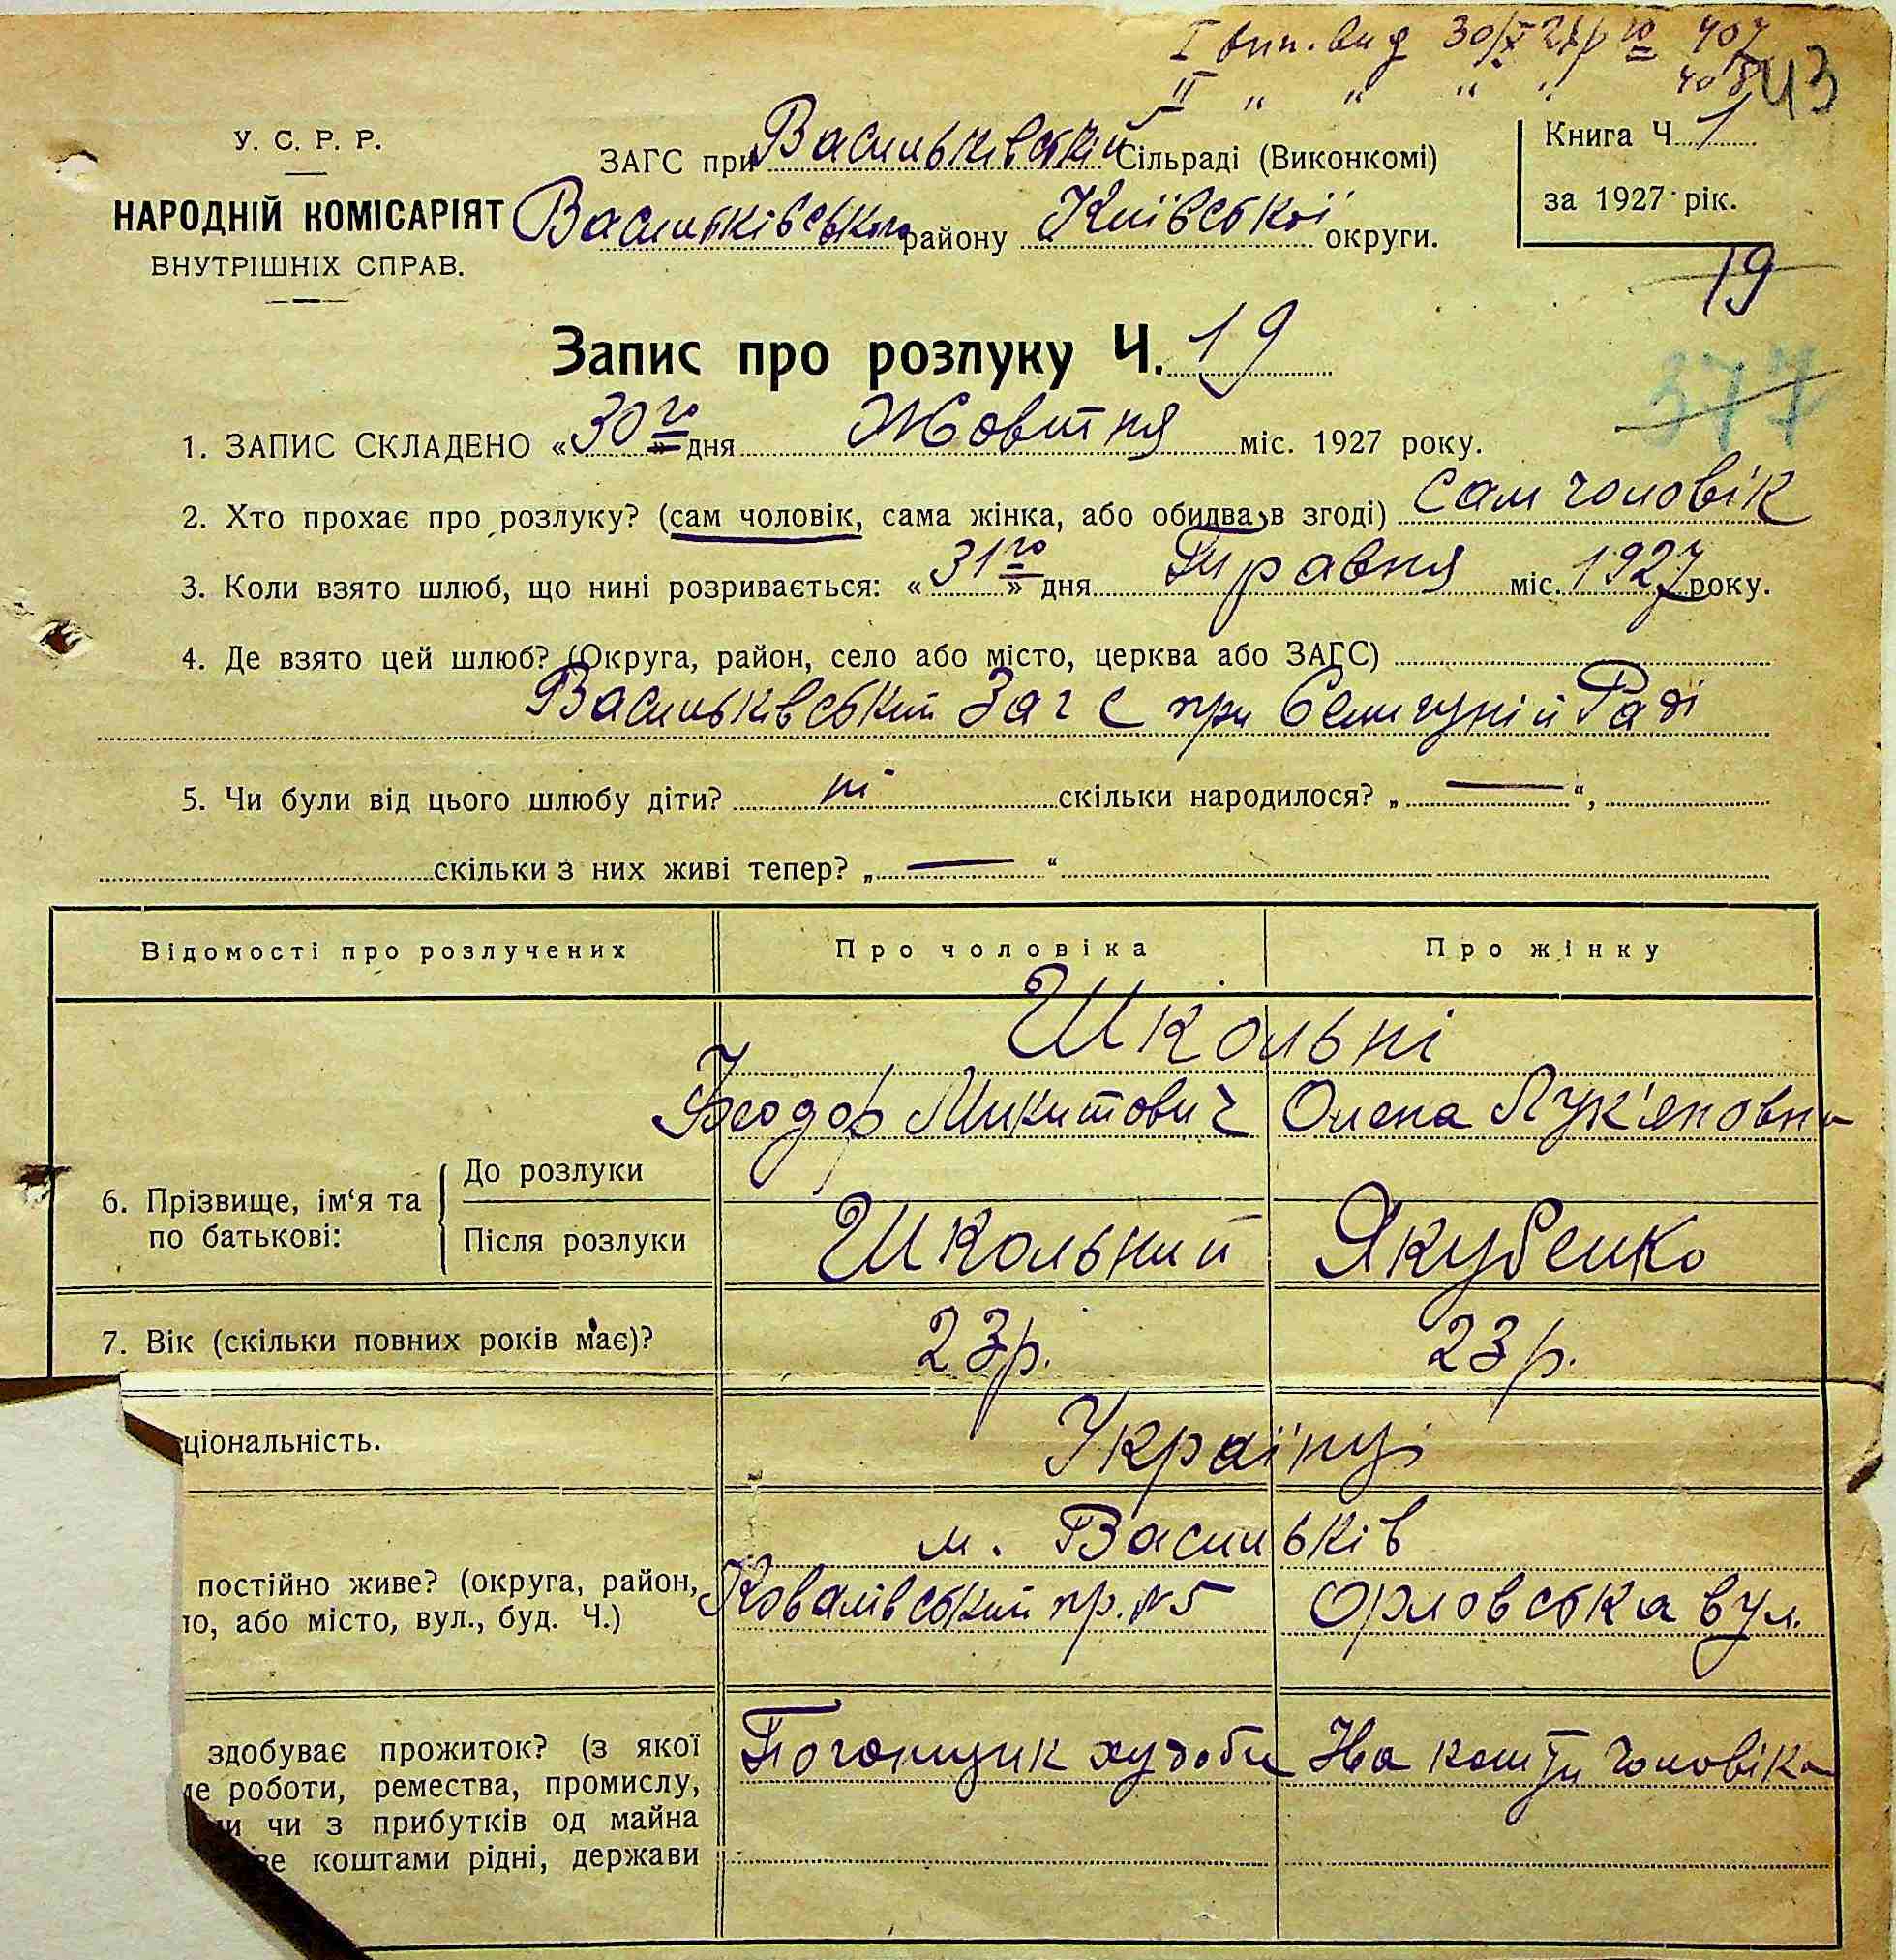 I вип. вид 30/X 27 р № 407
II " " " " 408
43
У. С. Р. Р.
НАРОДНІЙ КОМІСАРІЯТ
ВНУТРІШНІХ СПРАВ.
ЗАГС при Васильківській Сільраді (Виконкомі)
Васильківського району Київської округи.
Книга Ч. 1
за 1927 рік.
19
Запис про розлуку Ч. 19
377
1. ЗАПИС СКЛАДЕНО «30го» дня Жовтня міс. 1927 року.
2. Хто прохає про розлуку? (сам чоловік, сама жінка, або обидва в згоді) Сам чоловік
3. Коли взято шлюб, що нині розривається: «31го» дня Травня міс. 1927 року.
4. Де взято цей шлюб? (Округа, район, село або місто, церква або ЗАГС)
Васильківський Загс при Селищній Раді
5. Чи були від цього шлюбу діти? ні скільки народилося? „—“,
скільки з них живі тепер? „—“
Відомості про розлучених Про чоловіка Про жінку
Школьні
Феодор Микитович Олена Лук'яновна
6. Прізвище, ім'я та по батькові:
До розлуки
Після розлуки Школьний Якубенко
7. Вік (скільки повних років має)? 23 р. 23 р.
ціональність. Українці
м. Васильків
постійно живе? (округа, район, Ковалівський пр. №5 Орловська вул.
ло, або місто, вул., буд. Ч.)
здобуває прожиток? (з якої Погонщик худоби На кошти чоловіка
ме роботи, ремества, промислу,
ми чи з прибутків од майна
ве коштами рідні, держави